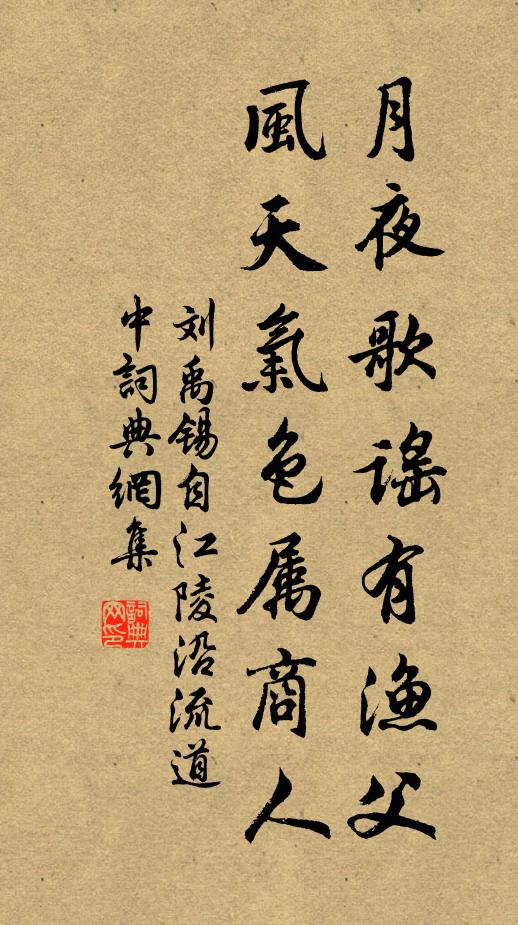 月夜歌謡有漁父
風天氣色属商人
刘禹锡自江陵沿流道
中詞典網集
詞典
网印